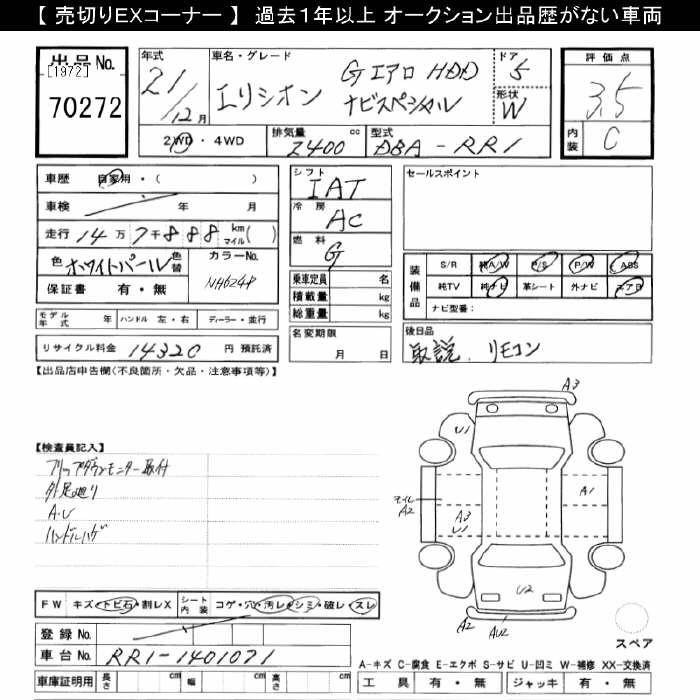 【 売切りEXコーナー 】 過去1年以上 オークション出品歴がない車両
出品No.
【1972】
70272
年式
21/12月
車名・グレード
エリシオン
Gエアロ HDD
ナビスペシャル
ドア
5
形状
W
評価点
3.5
内装
C
2WD・4WD
排気量
2400 cc
型式
DBA-RR1
車歴 自家用・( )
車検 年 月
走行 14万7千888 km マイル( )
色 ホワイトパール 色替
カラーNo.
NH624P
保証書 有・無
モデル年式 年 ハンドル 左・右 ディーラー・並行
リサイクル料金 14320 円 預託済
シフト
IAT
冷房
AC
燃料
G
乗車定員 名
積載量 kg
総重量 kg
名変期限
月 日
セールスポイント
装備品
S/R 純A/W P/S P/W ABS
純TV 純ナビ 革シート 外ナビ エアB
ナビ型番:
後日品
取説. リモコン
【出品店申告欄(不良箇所・欠品・注意事項等)】
【検査員記入】
フリップダウンモニター取付
外足廻り
A.U
ハンドルハゲ
A3
U1
A1
モイル
A2
A3
U1
U2
A2
AU2
スペア
FW キズ・トビ石・割レX
シート内装 コゲ・穴・汚レ・シミ・破レ・スレ
登録No.
車台No. RR1-1401071
車庫証明用 長さ cm 幅 cm 高さ cm
A-キズ C-腐食 E-エクボ S-サビ U-凹ミ W-補修 XX-交換済
工具 有・無 ジャッキ 有・無